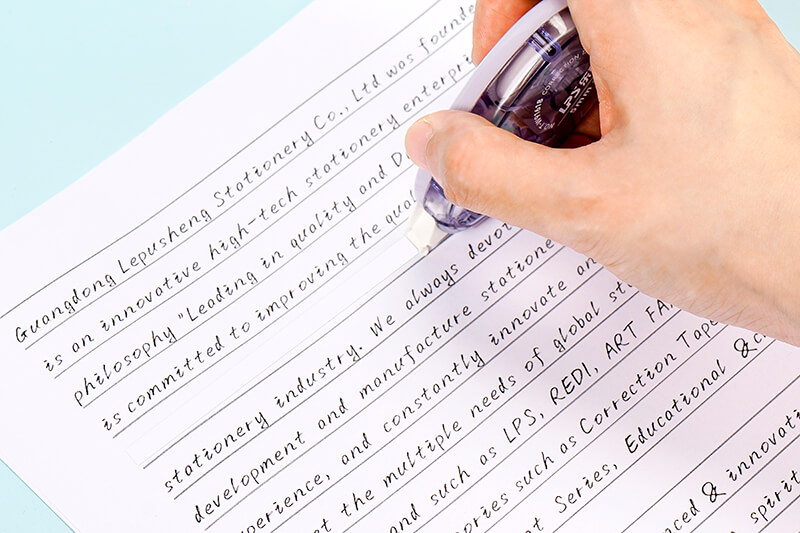 Guangdong Lepusheng Stationery Co., Ltd was founde
is an innovative high-tech stationery enterpri
philosophy "Leading in quality and D
is committed to improving the qua
stationery industry. We always devo
development and manufacture statione
perience, and constantly innovate an
et the multiple needs of global st
and such as LPS, REDI, ART FA
ories such as Correction Tape
nt Series, Educational &
nced & innovati
spirit
LPS
5mm